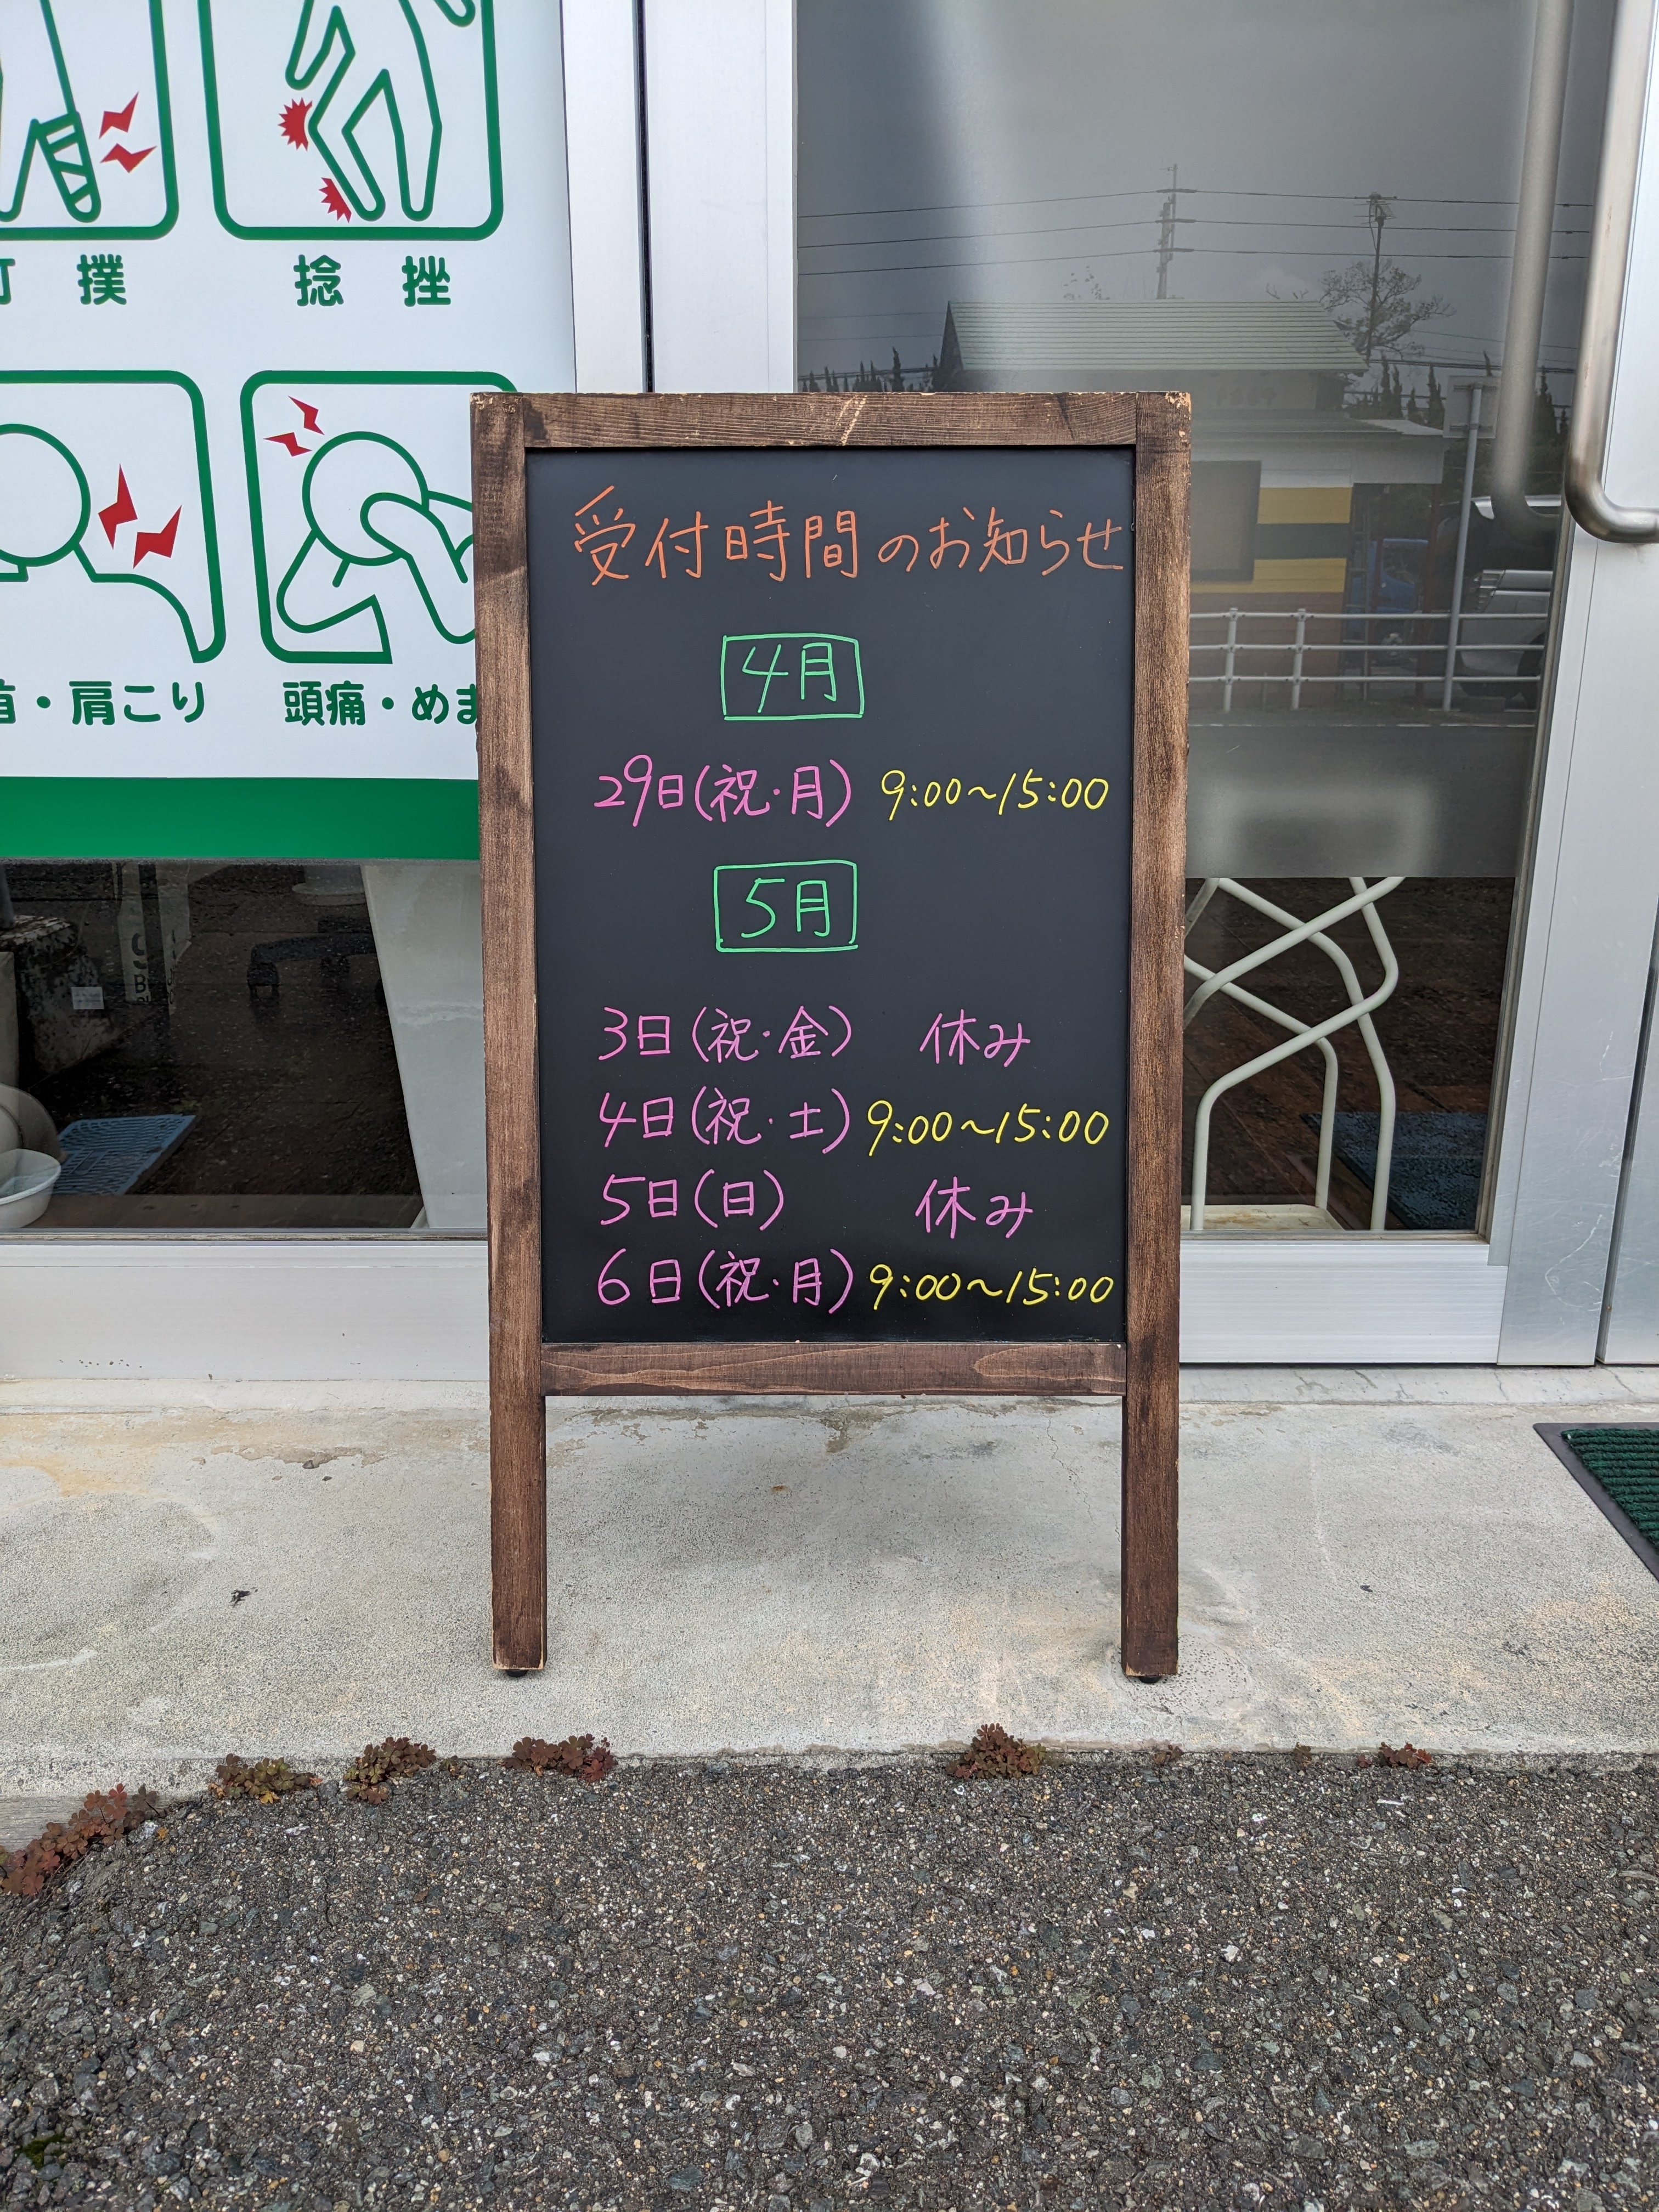 撲
捻挫
肩こり
頭痛・めま
受付時間のお知らせ
4月
29日(祝・月) 9:00〜15:00
5月
3日(祝・金) 休み
4日(祝・土) 9:00〜15:00
5日(日) 休み
6日(祝・月) 9:00〜15:00